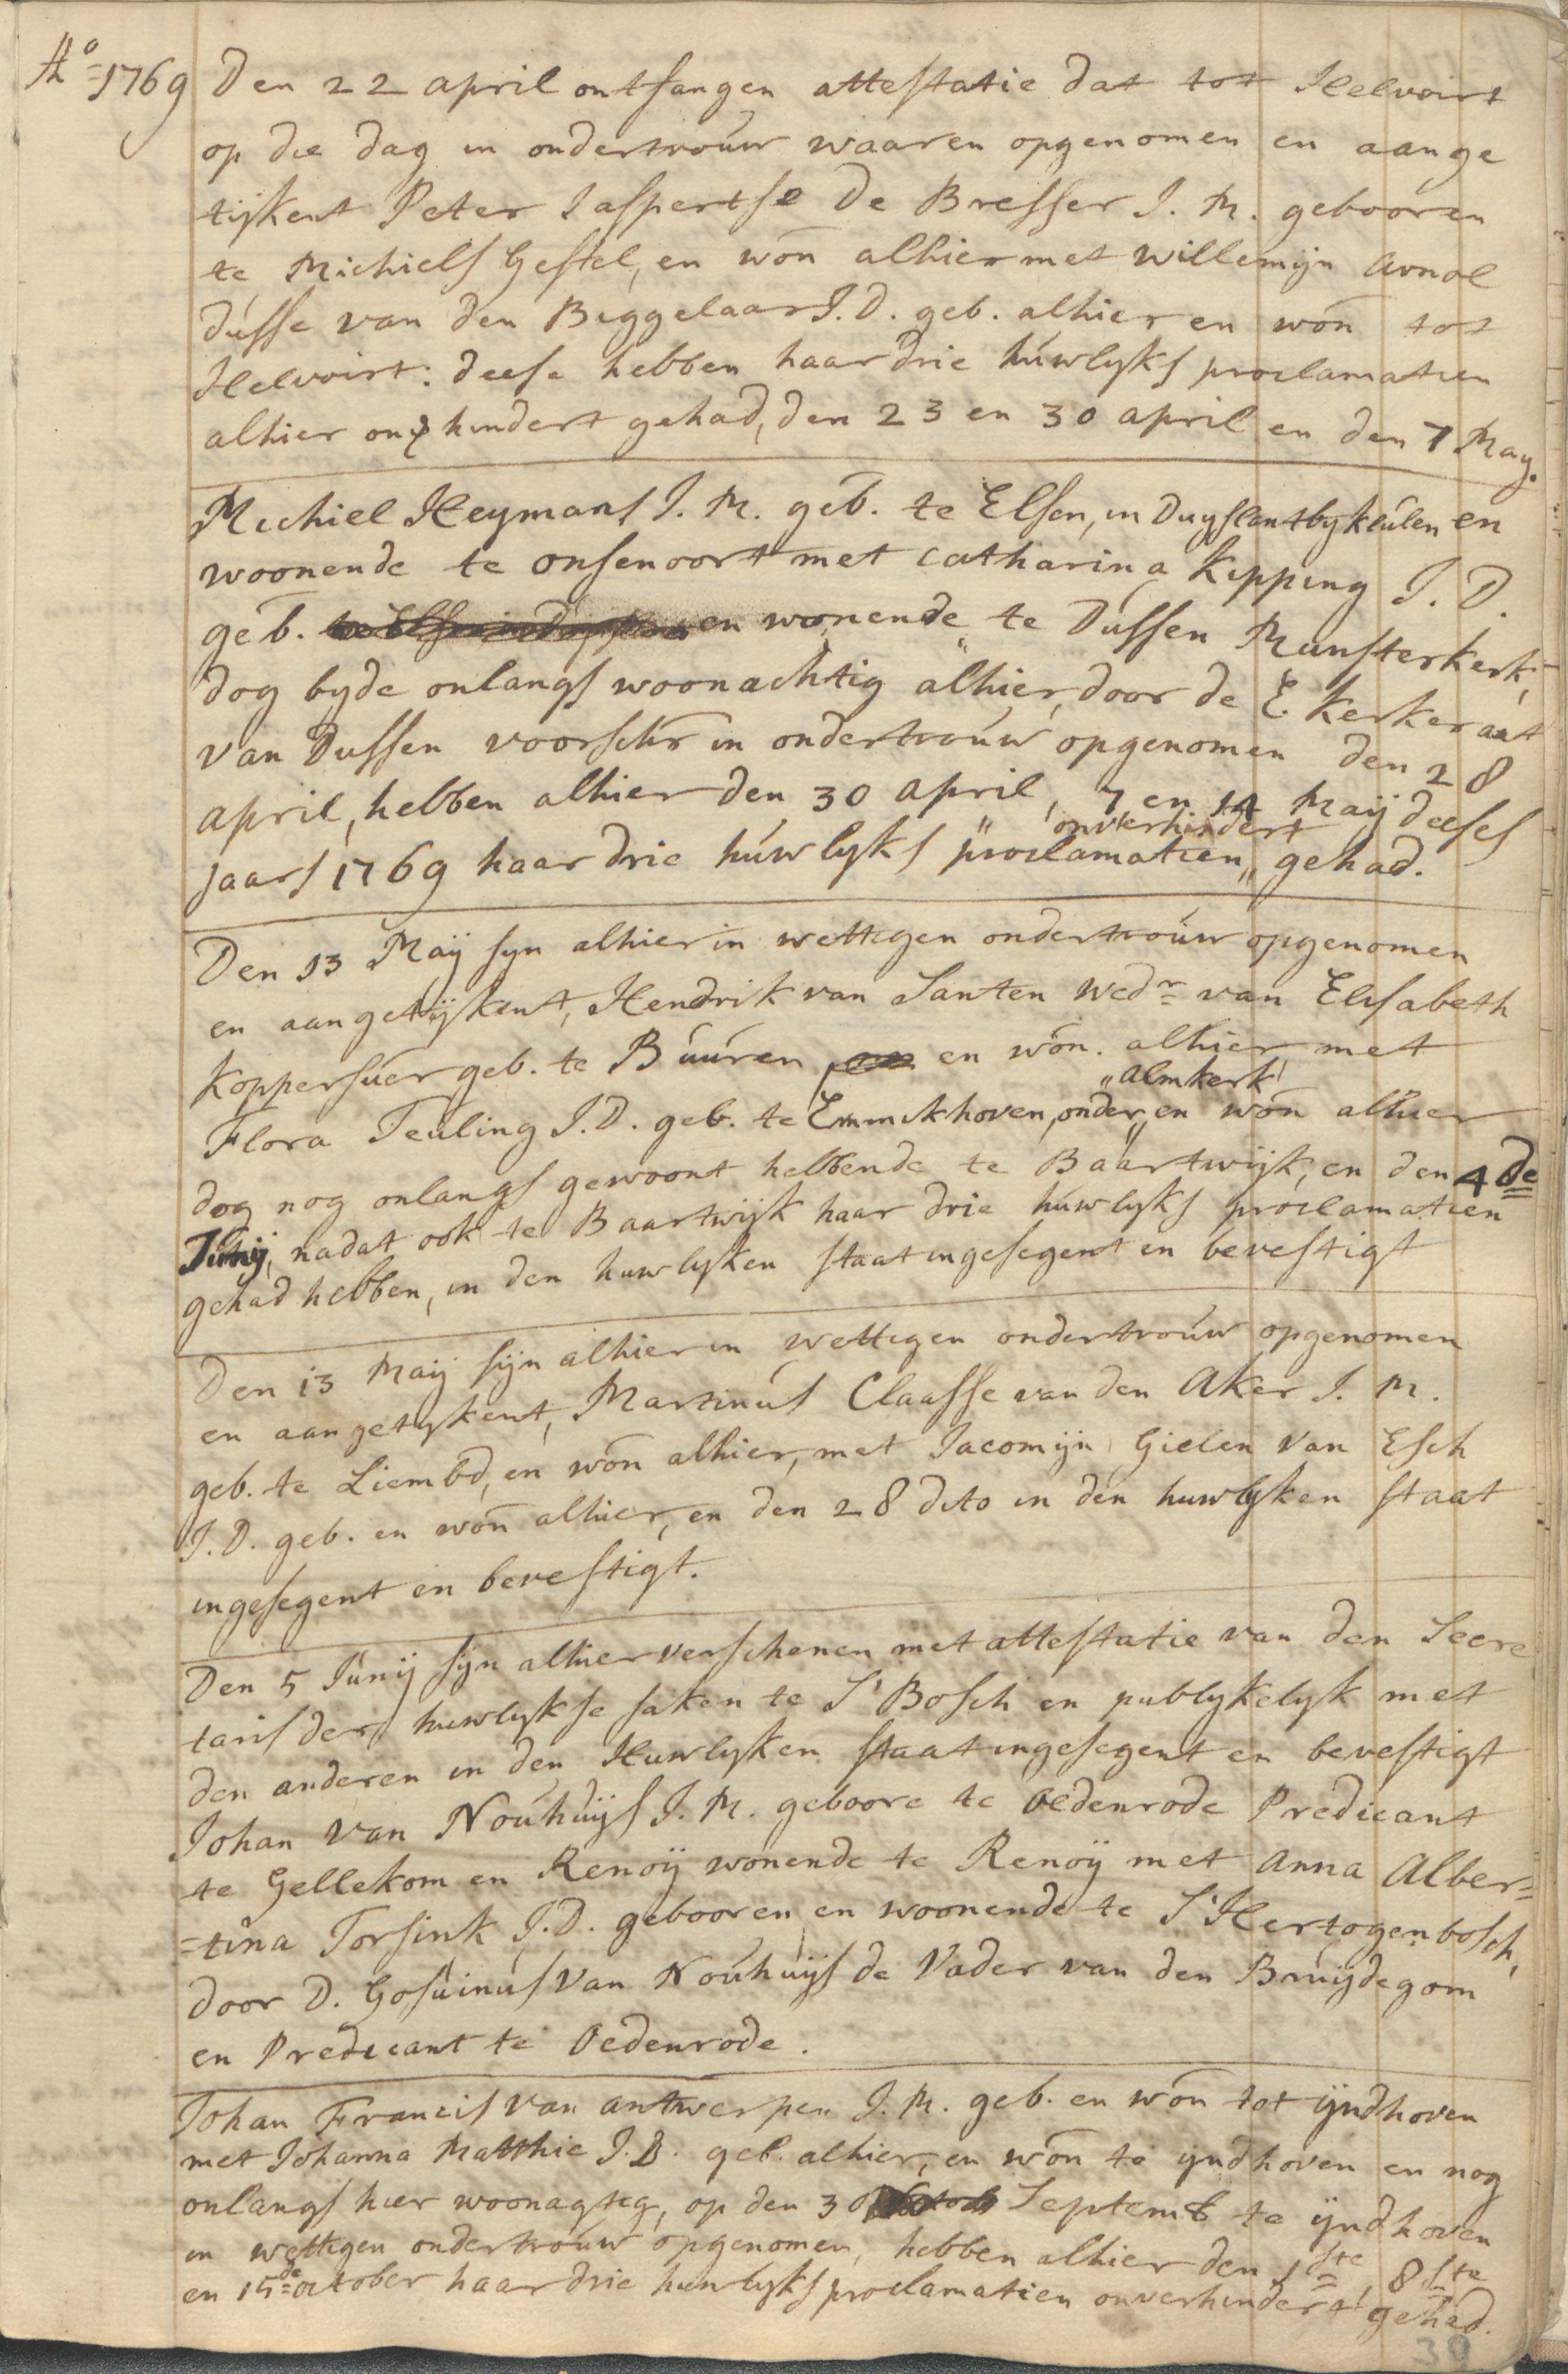 Aº 1769 Den 22 april ontfangen attestatie dat tot Helvoirt
op die dag in ondertrouw waaren opgenomen en aange
tijkent Peter Jaspertse De Bresser J. M. gebooren
te Michiels Gestel, en won alhier met Willemijn Arnol
dusse van den Beggelaar J. D. geb. alhier en won tot
Helvoirt: deese hebben haar drie huwlyks proclamatien
alhier hindert gehad, den 23 en 30 april en den 7 May.
Michiel Heymans J. M. geb. te Elsen, in Duyslant by Keulen en
woonende te onsenoort met Catharina Kipping J. D.
geb. en wonende te Dussen Munsterkerk,
dog byde onlangs woonachtig alhier, door de E. Kerkeraat
van Dussen voorschr in ondertrouw opgenomen den 28
april, hebben alhier den 30 april, 7 en 14 Maÿ deeses
jaars 1769 haar drie huwlyks proclamatien „onverhindert„ gehad.
Den 13 Maÿ syn alhier in wettigen ondertrouw opgenomen
en aangetijkent, Hendrik van Santen Wedr van Elisabeth
Koppersuer geb. te Buuren en won. alhier met
Flora Teuling J. D. geb. te Emmikhoven, onder „Almkerk„ en won alhier
dog nog onlangs gewoont hebbende te Baartwijk, en den 4de
Junij, nadat ook te Baartwijk haar drie huwlyks proclamatien
gehad hebben, in den huwlyken staat ingesegent en bevestigt
Den 13 Maij sijn alhier in wettigen ondertrouw opgenomen
en aangetykent, Martinus Claasse van den Aker J. M.
geb. te Liembd, en won alhier, met Jacomijn Gielen van Esch
J. D. geb. en won alhier, en den 28 dito in den huwlyken staat
ingesegent en bevestigt.
Den 5 Junij sijn alhier verschenen met attestatie van den Secre
taris der huwlykse saken te S'Bosch en publykelyk met
den anderen in den Huwlyken staat ingesegent en bevestigt
Johan van Nouhuijs J. M. geboore te Oedenrode Predicant
te Gellekom en Renoÿ wonende te Renoÿ met Anna Alber=
=tina Torsink J. D. gebooren en woonende te S'Hertogenbosch,
door D. Gosuinus van Nouhuijs de Vader van den Bruijdegom
en Predicant te Oedenrode.
Johan Francis van antwerpen J. M. geb. en won tot ÿndhoven
met Johanna Matthie J. D. geb. alhier, en won te yndhoven en nog
onlangs hier woonagteg, op den 30 Septemb te ÿndhoven
in wettigen ondertrouw opgenomen, hebben alhier den 1ste, 8ste
en 15de october haar drie huwlyks proclamatien onverhindert gehad.
38